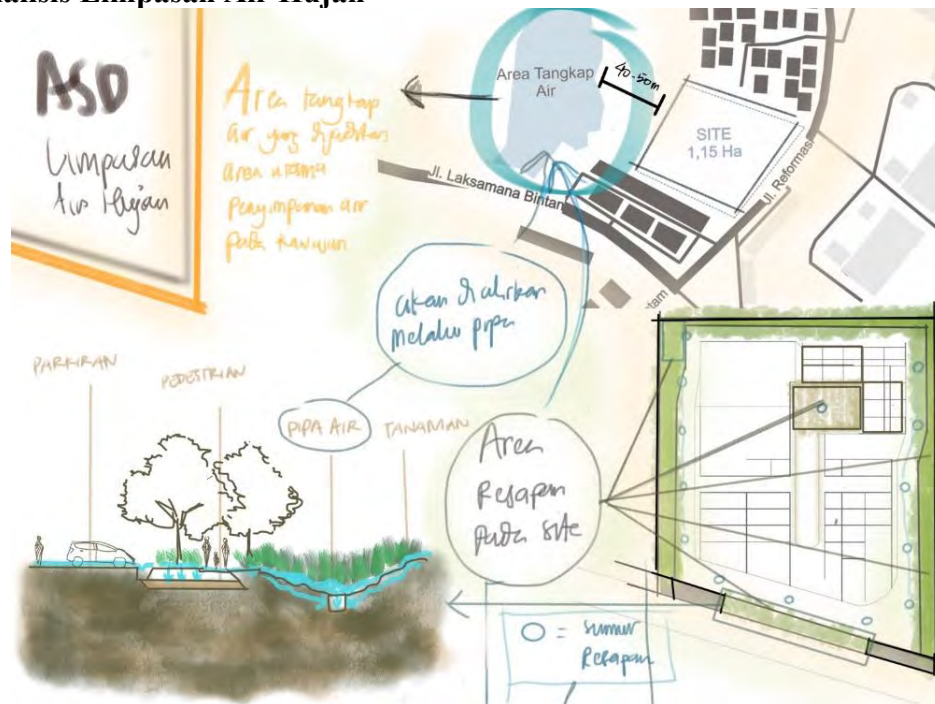 Limpasan Air Hujan
ASD
Limpasan
Air Hujan
Area tangkap
air yang dijadikan
area utama
penyimpanan air
pada kawasan
Area Tangkap
Air
40-50m
SITE
1,15 Ha
Jl. Laksamana Bintan
Jl. Reformasi
tam
akan dialirkan
Melalui pipa
PARKIRAN
PEDESTRIAN
PIPA AIR
TANAMAN
Area
Resapan
pada site
O = sumur
Resapan